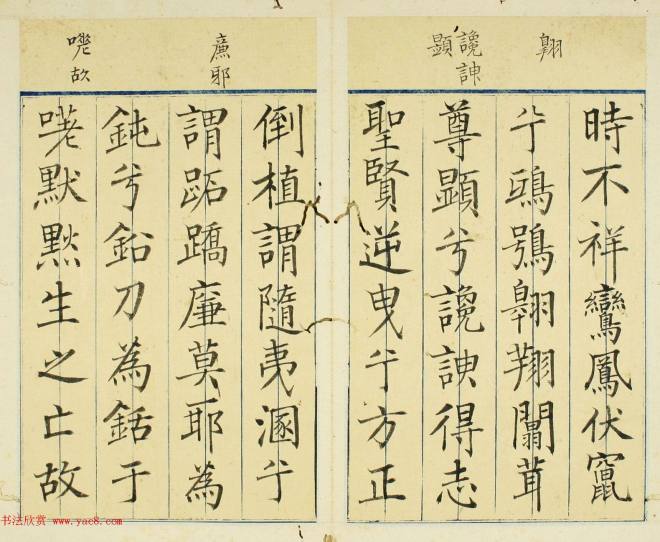 翱
讒諛
顯
時不祥鸞鳳伏竄
兮鴟鴞翱翔闒茸
尊顯兮讒諛得志
聖賢逆曳兮方正
廉邪
嗟故
倒植謂隨夷溷兮
謂跖蹻廉莫耶為
鈍兮鉛刀為銛于
嗟默默生之亡故
书法欣赏 www.yac8.com